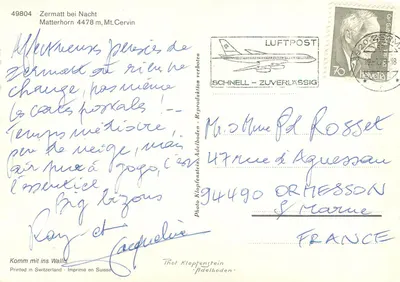 49804 Zermatt bei Nacht
Matterhorn 4478 m, Mt. Cervin
Affectueuses pensées de
Zermatt où rien ne
change, pas même
les cartes postales !
Temps médiocre,
peu de neige, mais
air pur à gogo, c'est
l'essentiel.
Big bizous
Rony et Jacqueline
Komm mit ins Wallis
Printed in Switzerland - Imprimé en Suisse
Photo Klopfenstein, Adelboden - Reproduktion verboten
LUFTPOST
SCHNELL - ZUVERLÄSSIG
70
HELVETIA
M. & Mme Pd Rosset
47 rue d'Aguesseau
94490 ORMESSON
S/ Marne
FRANCE
Klopfenstein
Adelboden